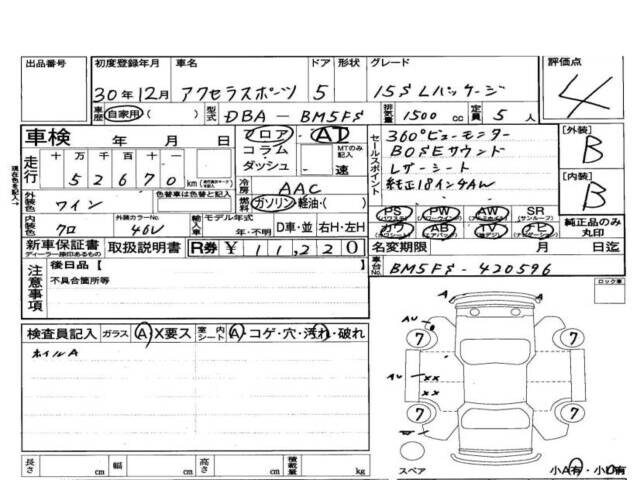 出品番号 初度登録年月 車名 ドア 形状 グレード 評価点
30年12月 アクセラスポーツ 5 15S Lパッケージ 4
車歴 自家用 ( ) 型式 DBA-BM5FS 排気量 1500 cc 定員 5 人
車検 年 月 日
フロア AT
コラム・ダッシュ MTのみ記入 速
セールスポイント
360°ビューモニター
BOSEサウンド
レザーシート
純正18インチAW
[外装] B
[内装] B
現在色を記入→
走行 十 万 千 百 十 一
5 2 6 7 0 km
色替車は色替と記入
外装色 ワイン
冷房 AAC
燃料 ガソリン・軽油・( )
内装色 クロ 外装カラーNo. 46V
輸入車 モデル年式 年・不明 D車・並 右H・左H
PS PW AW SR (サンルーフ)
カワ AB TV ナビ
純正品のみ丸印
新車保証書 取扱説明書 R券 ¥ 11,220
ディーラー捺印あるもの
名変期限 月 日迄
車台No. BM5FS-420596
注意事項
後日品 [ ]
不具合箇所等
ロック車
検査員記入 ガラス A X要ス 室内シート A・コゲ・穴・汚れ・破れ
ホイルA
A A
AU
7 7
AU ×× ××
7 7
スペア
小A有・小U有
長さ cm 幅 cm 高さ cm 積載量 kg